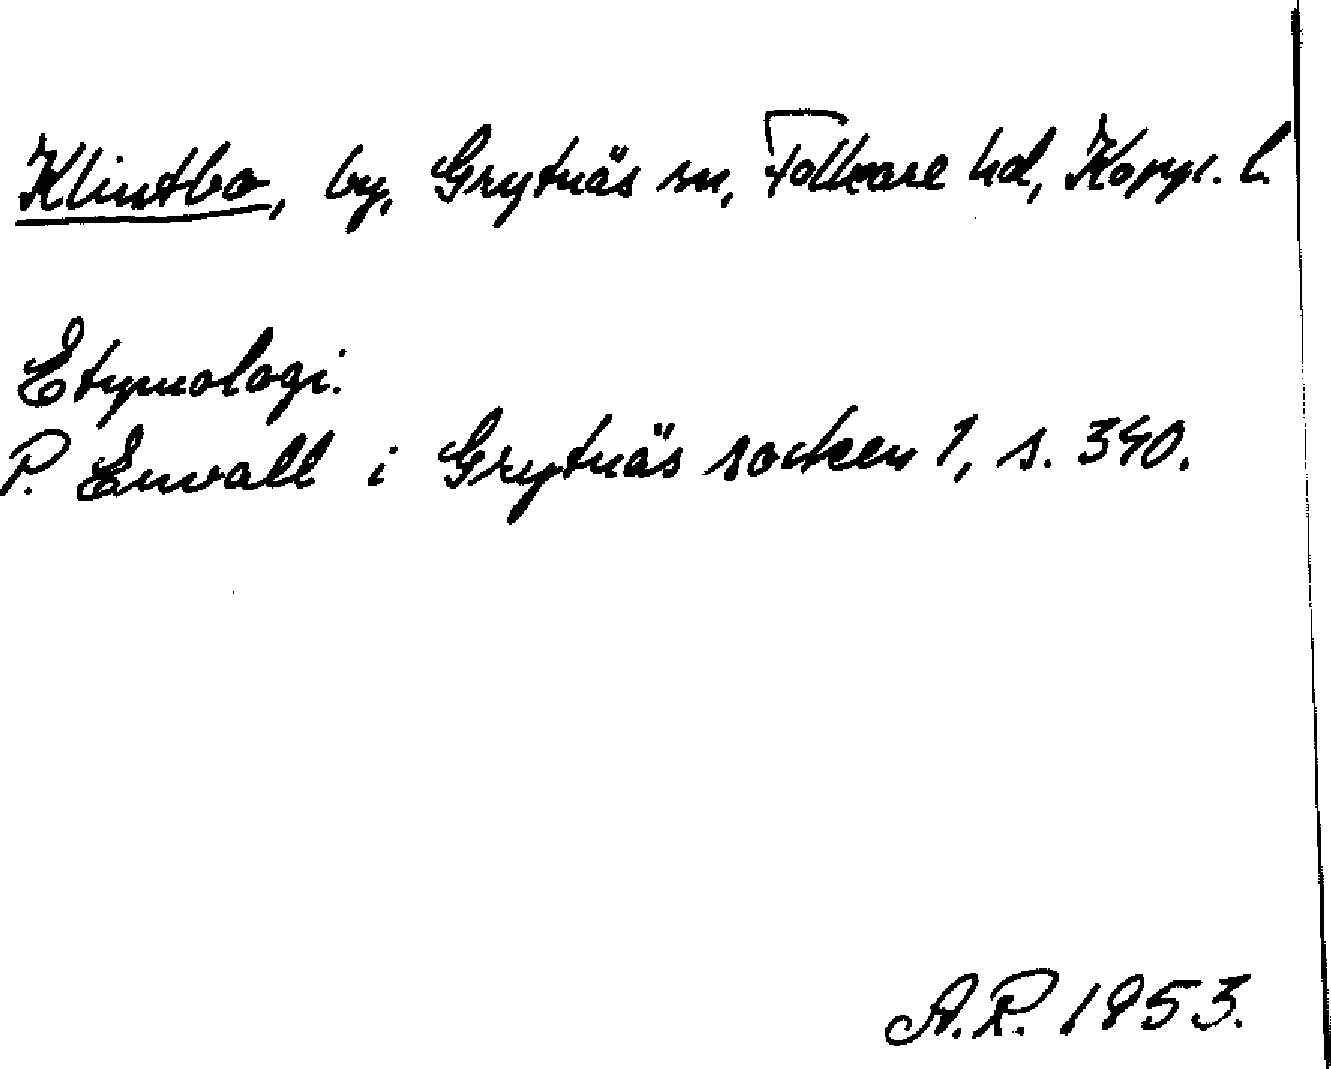 Klintbo, by, Grytnäs sn, Folkare hd, Kopp. l.
Etymologi.
P. Envall i Grytnäs socken 1, s. 340.
A.R. 1953.